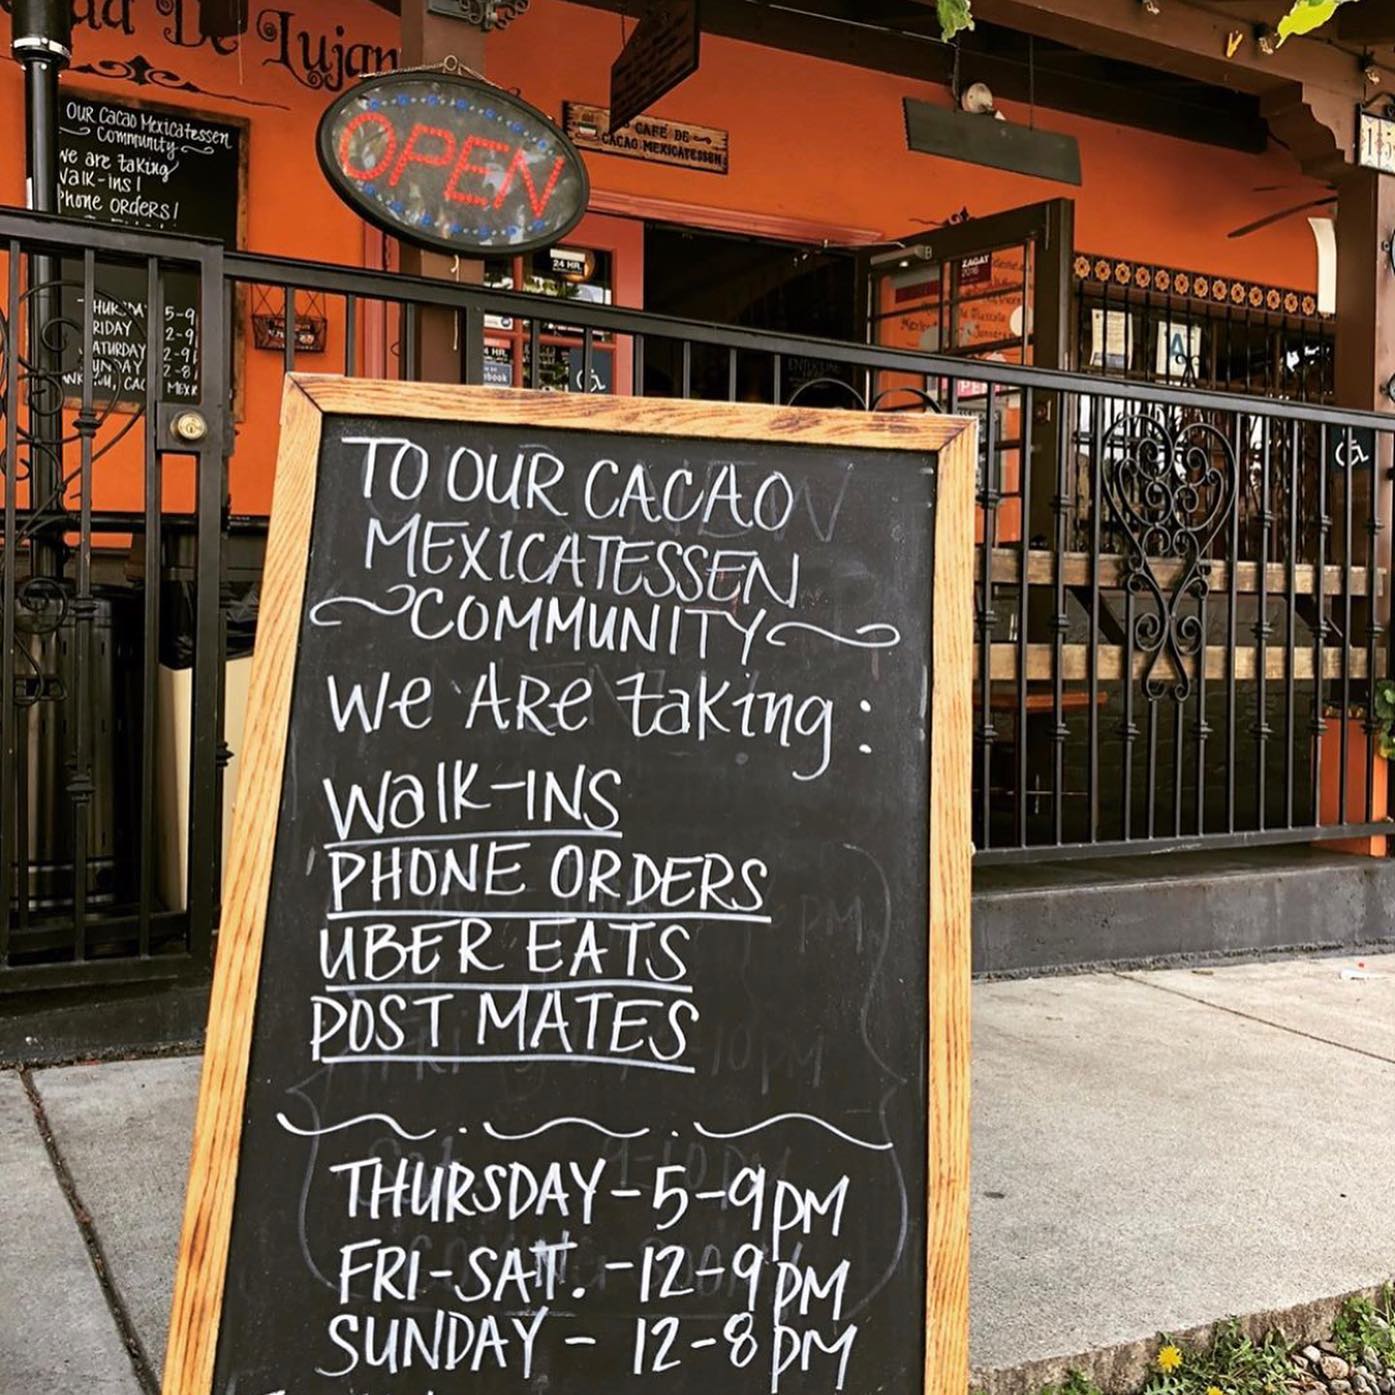 De Lujan
OUR Cacao Mexicatessen
Community
we are taking
walk-ins!
Phone orders!
OPEN
CAFÉ DE
CACAO MEXICATESSEN
24 HR.
ZAGAT
A
5-9
RIDAY 2-9
ATURDAY 2-9
UNDAY 2-8
TO OUR CACAO
MEXICATESSEN
COMMUNITY
We ARe taking:
Walk-INS
PHONE ORDERS
UBER EATS
POST MATES
THURSDAY-5-9PM
FRI-SAT. -12-9PM
SUNDAY - 12-8PM